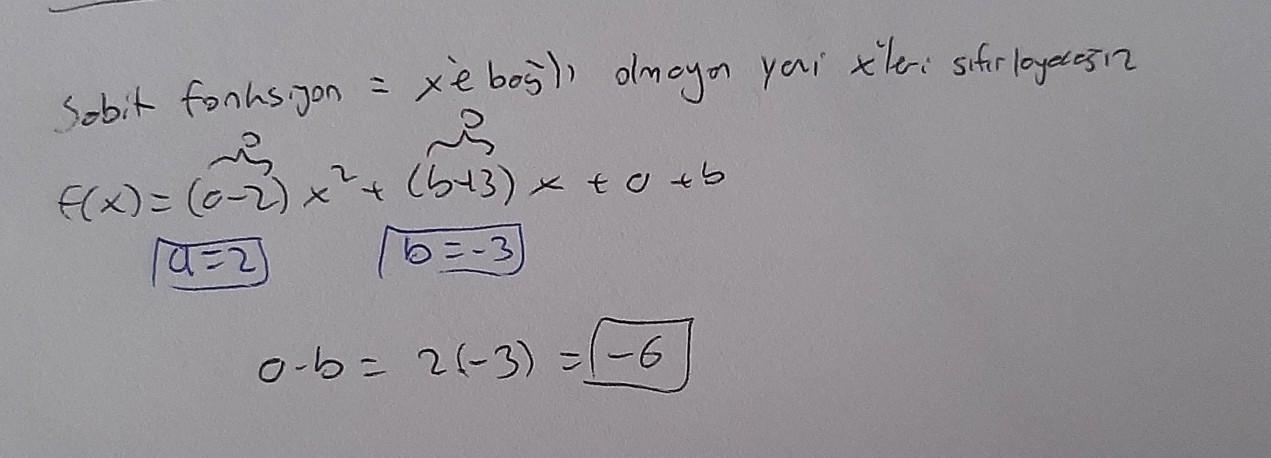 Sabit fonksiyon = x'e bağlı olmayan yani x'leri sıfırlayacağız
0 0
f(x) = (a-2) x² + (b+3) x + a + b
a=2 b=-3
a·b = 2(-3) = -6